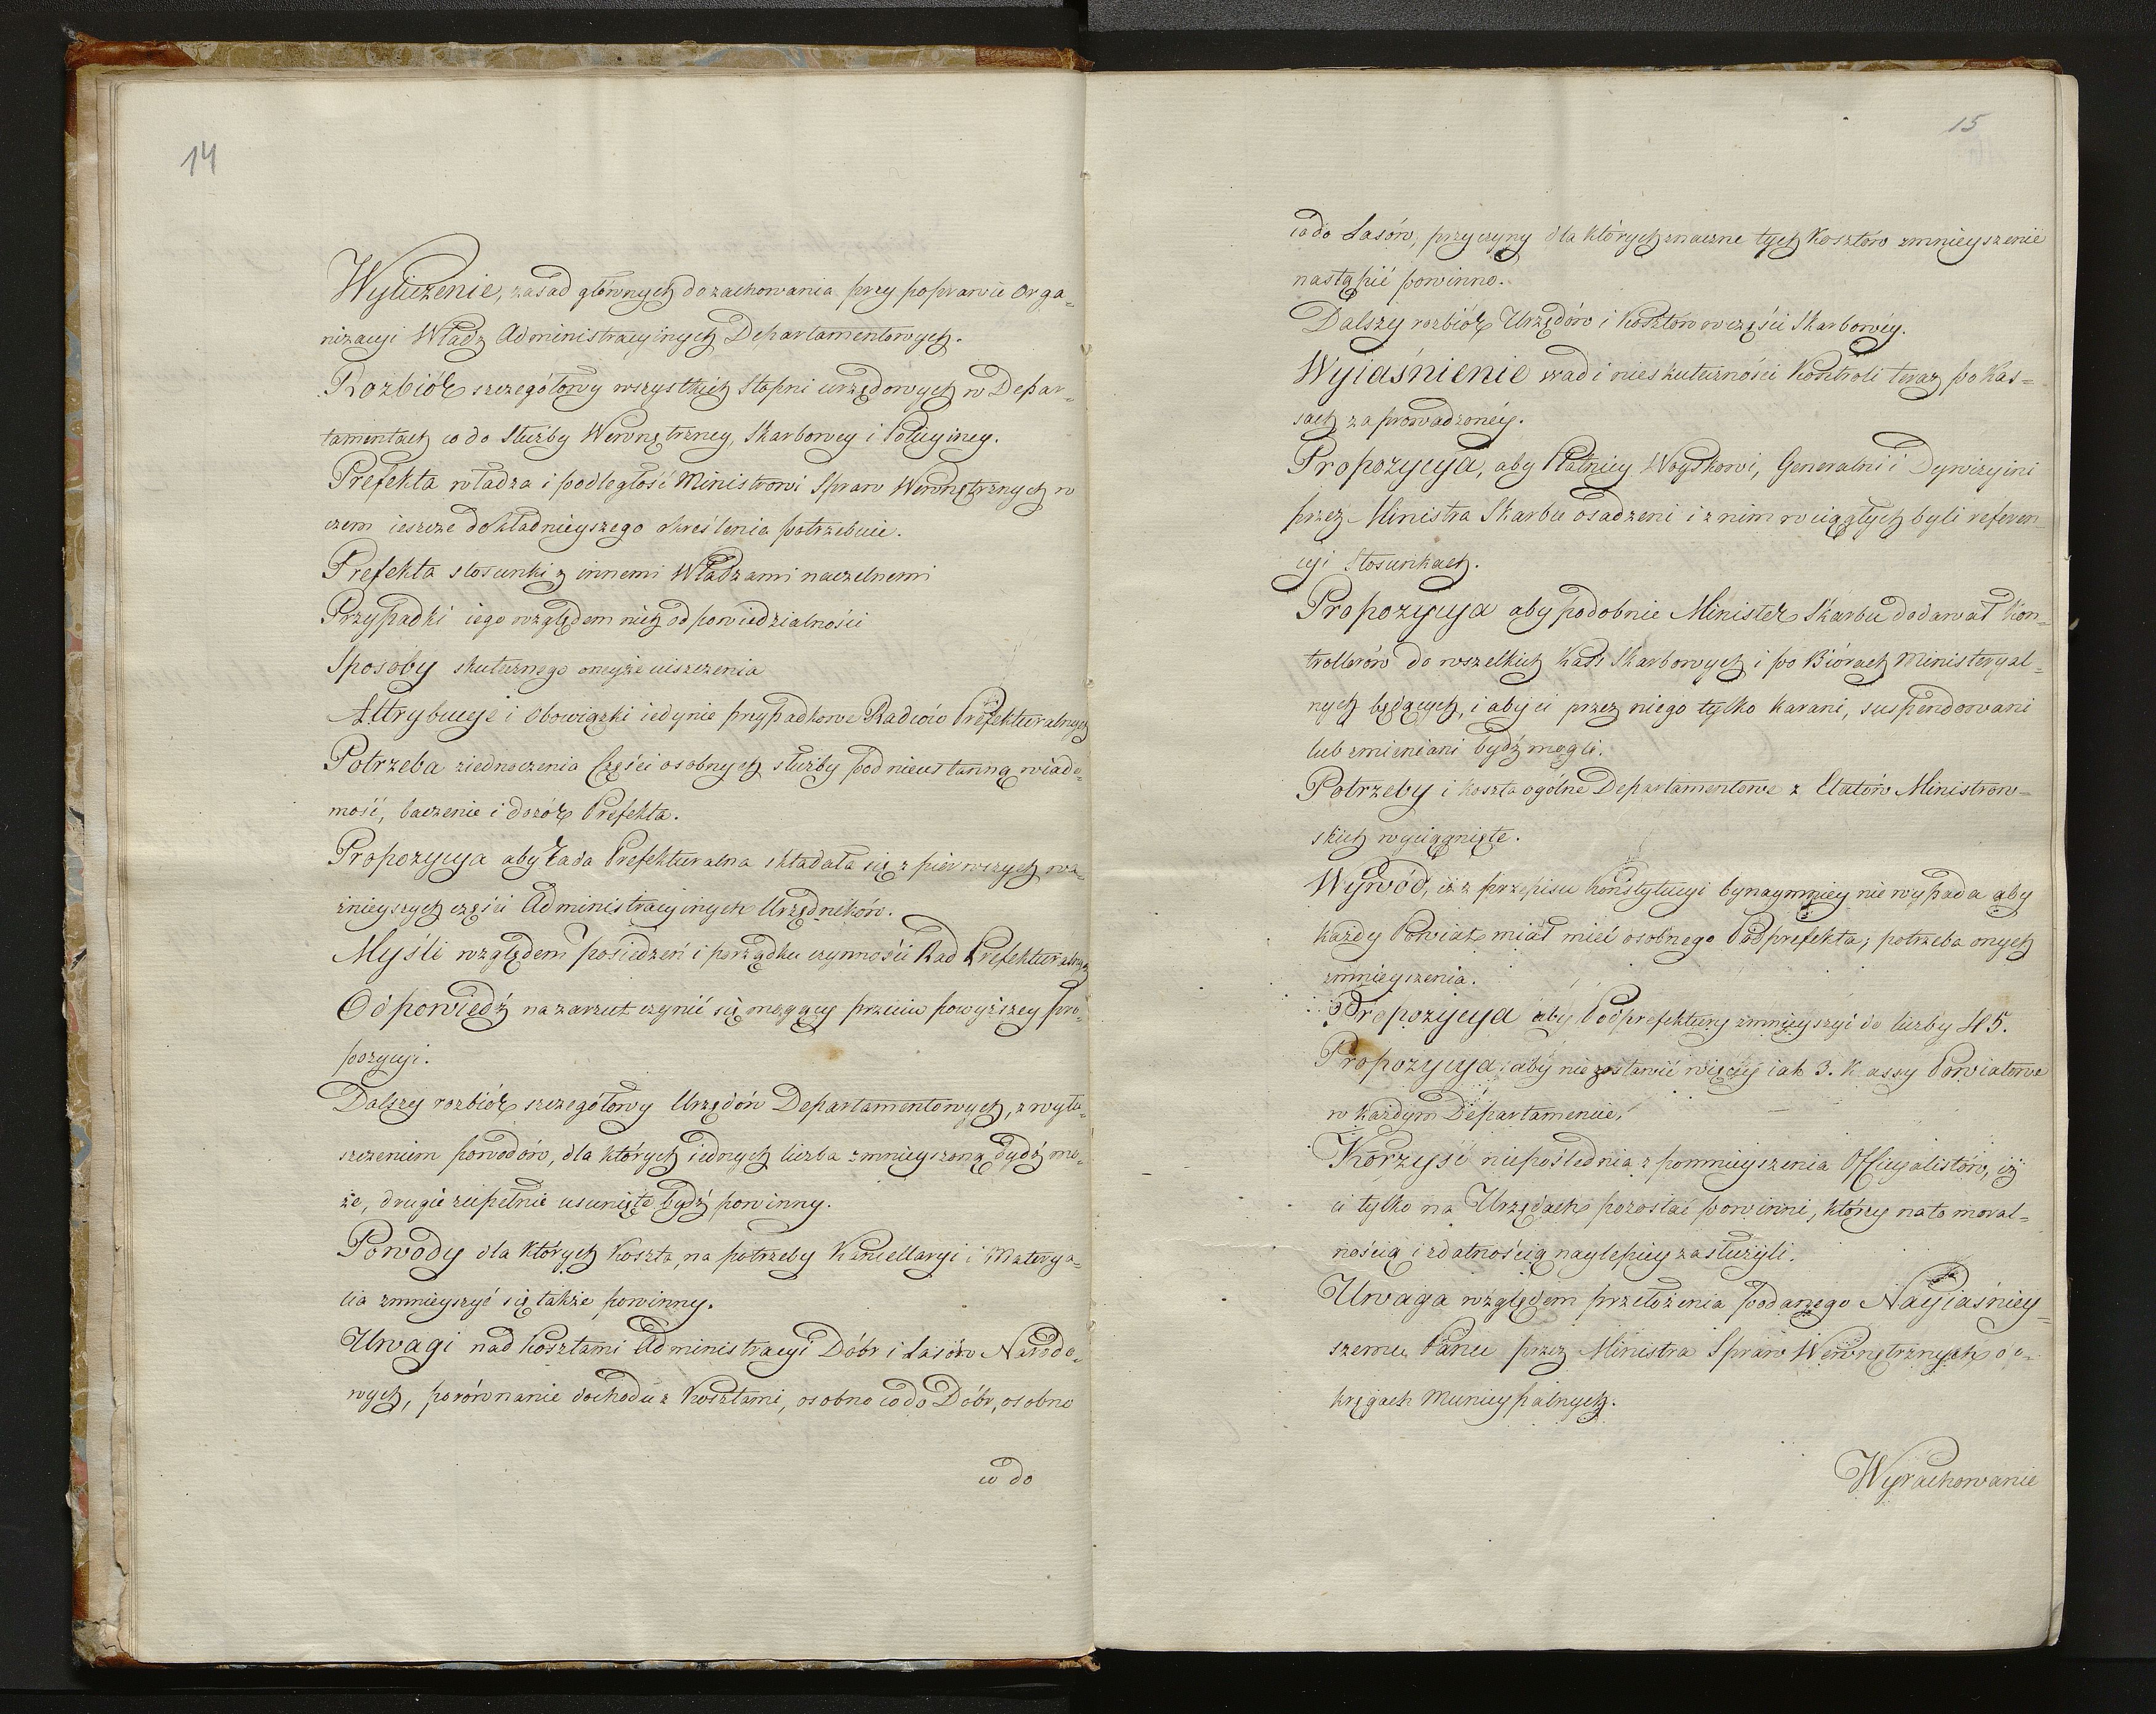 14
Wyłuczenie, zasad głównych do zachowania przy poprawie Orga=
nizacyi Władz Administracyinych Departamentowych.
Rozbiór szczegółowy wszystkich Stopni urzędowych w Depar=
tamentach co do Służby Wewnętrzney, Skarbowey i Policyiney.
Prefekta władza i podległość Ministrowi Spraw Wewnętrznych w
czem ieszcze dokładnieyszego określenia potrzebuie.
Prefekta stosunki z innemi Władzami naczelnemi
Przypadki iego względem nich odpowiedzialności
Sposoby skutecznego oneyże uiszczenia
Attrybucye i Obowiązki iedynie przypadkowe Radców Prefekturalnych
Potrzeba ziednoczenia Części osobnych służby pod nieustanną wiado=
mość, baczenie i dozór Prefekta.
Propozycya aby Rada Prefekturalna składała się z pierwszych wa=
żnieyszych części Administracyinych Urzędników.
Myśli względem posiedzeń i porządku czynności Rad Prefekturalnych
Odpowiedź na zarzut czynić się mogący przeciw powyższey pro=
pozycyi.
Dalszy rozbiór szczegółowy Urzędów Departamentowych, z wyłu=
szczeniem powodów, dla których iednych liczba zmnieyszoną bydź mo=
że, drugie zupełnie usunięte bydź powinny.
Powody dla których Koszta, na potrzeby Kancellaryi i Materya=
lia zmnieyszyć się także powinny.
Uwagi nad Kosztami Administracyi Dóbr i Lasów Narodo=
wych, porównanie dochodu z Kosztami, osobno co do Dóbr, osobno
co do
15
co do Lasów, przyczyny dla których znaczne tych Kosztów zmnieyszenie
nastąpić powinno.
Dalszy rozbiór Urzędów i Kosztów w części Skarbowéy.
Wyiaśnienie wad i nieskuteczności Kontroli teraz po Kas=
sach zaprowadzonéy.
Propozycya, aby Płatnicy Woyskowi, Generalni i Dywizyini
przez Ministra Skarbu osadzeni i z nim w ciągłych byli referen=
cyi Stosunkach.
Propozycya aby podobnie Minister Skarbu dodawał Kon=
trollerów do wszelkich Kass Skarbowych i po Biórach Ministeryal=
nych będących, i aby ci przez niego tylko karani, suspendowani
lub zmieniani bydź mogli.
Potrzeby i koszta ogólne Departamentowe z Etatów Ministrow=
skich wyciągnięte.
Wywód, iż z przepisu Konstytucyi bynaymniey nie wypada aby
każdy Powiat miał mieć osobnego Podprefekta; potrzeba onych
zmnieyszenia.
Propozycya aby Podprefektury zmnieyszyć do liczby 45.
Propozycya: aby nie zostawić więcéy iak 3. Kassy Powiatowe
w każdym Departamencie.
Korzyść niepoślednia z pomnieyszenia Officyalistów, iż
ci tylko na Urzędach pozostać powinni, którzy na to moral=
nością i zdatnością naylepiey zasłużyli.
Uwaga względem przełożenia podanego Nayiaśniey=
szemu Panu przez Ministra Spraw Wewnętrznych o o=
kręgach Municypalnych.
Wyrachowanie